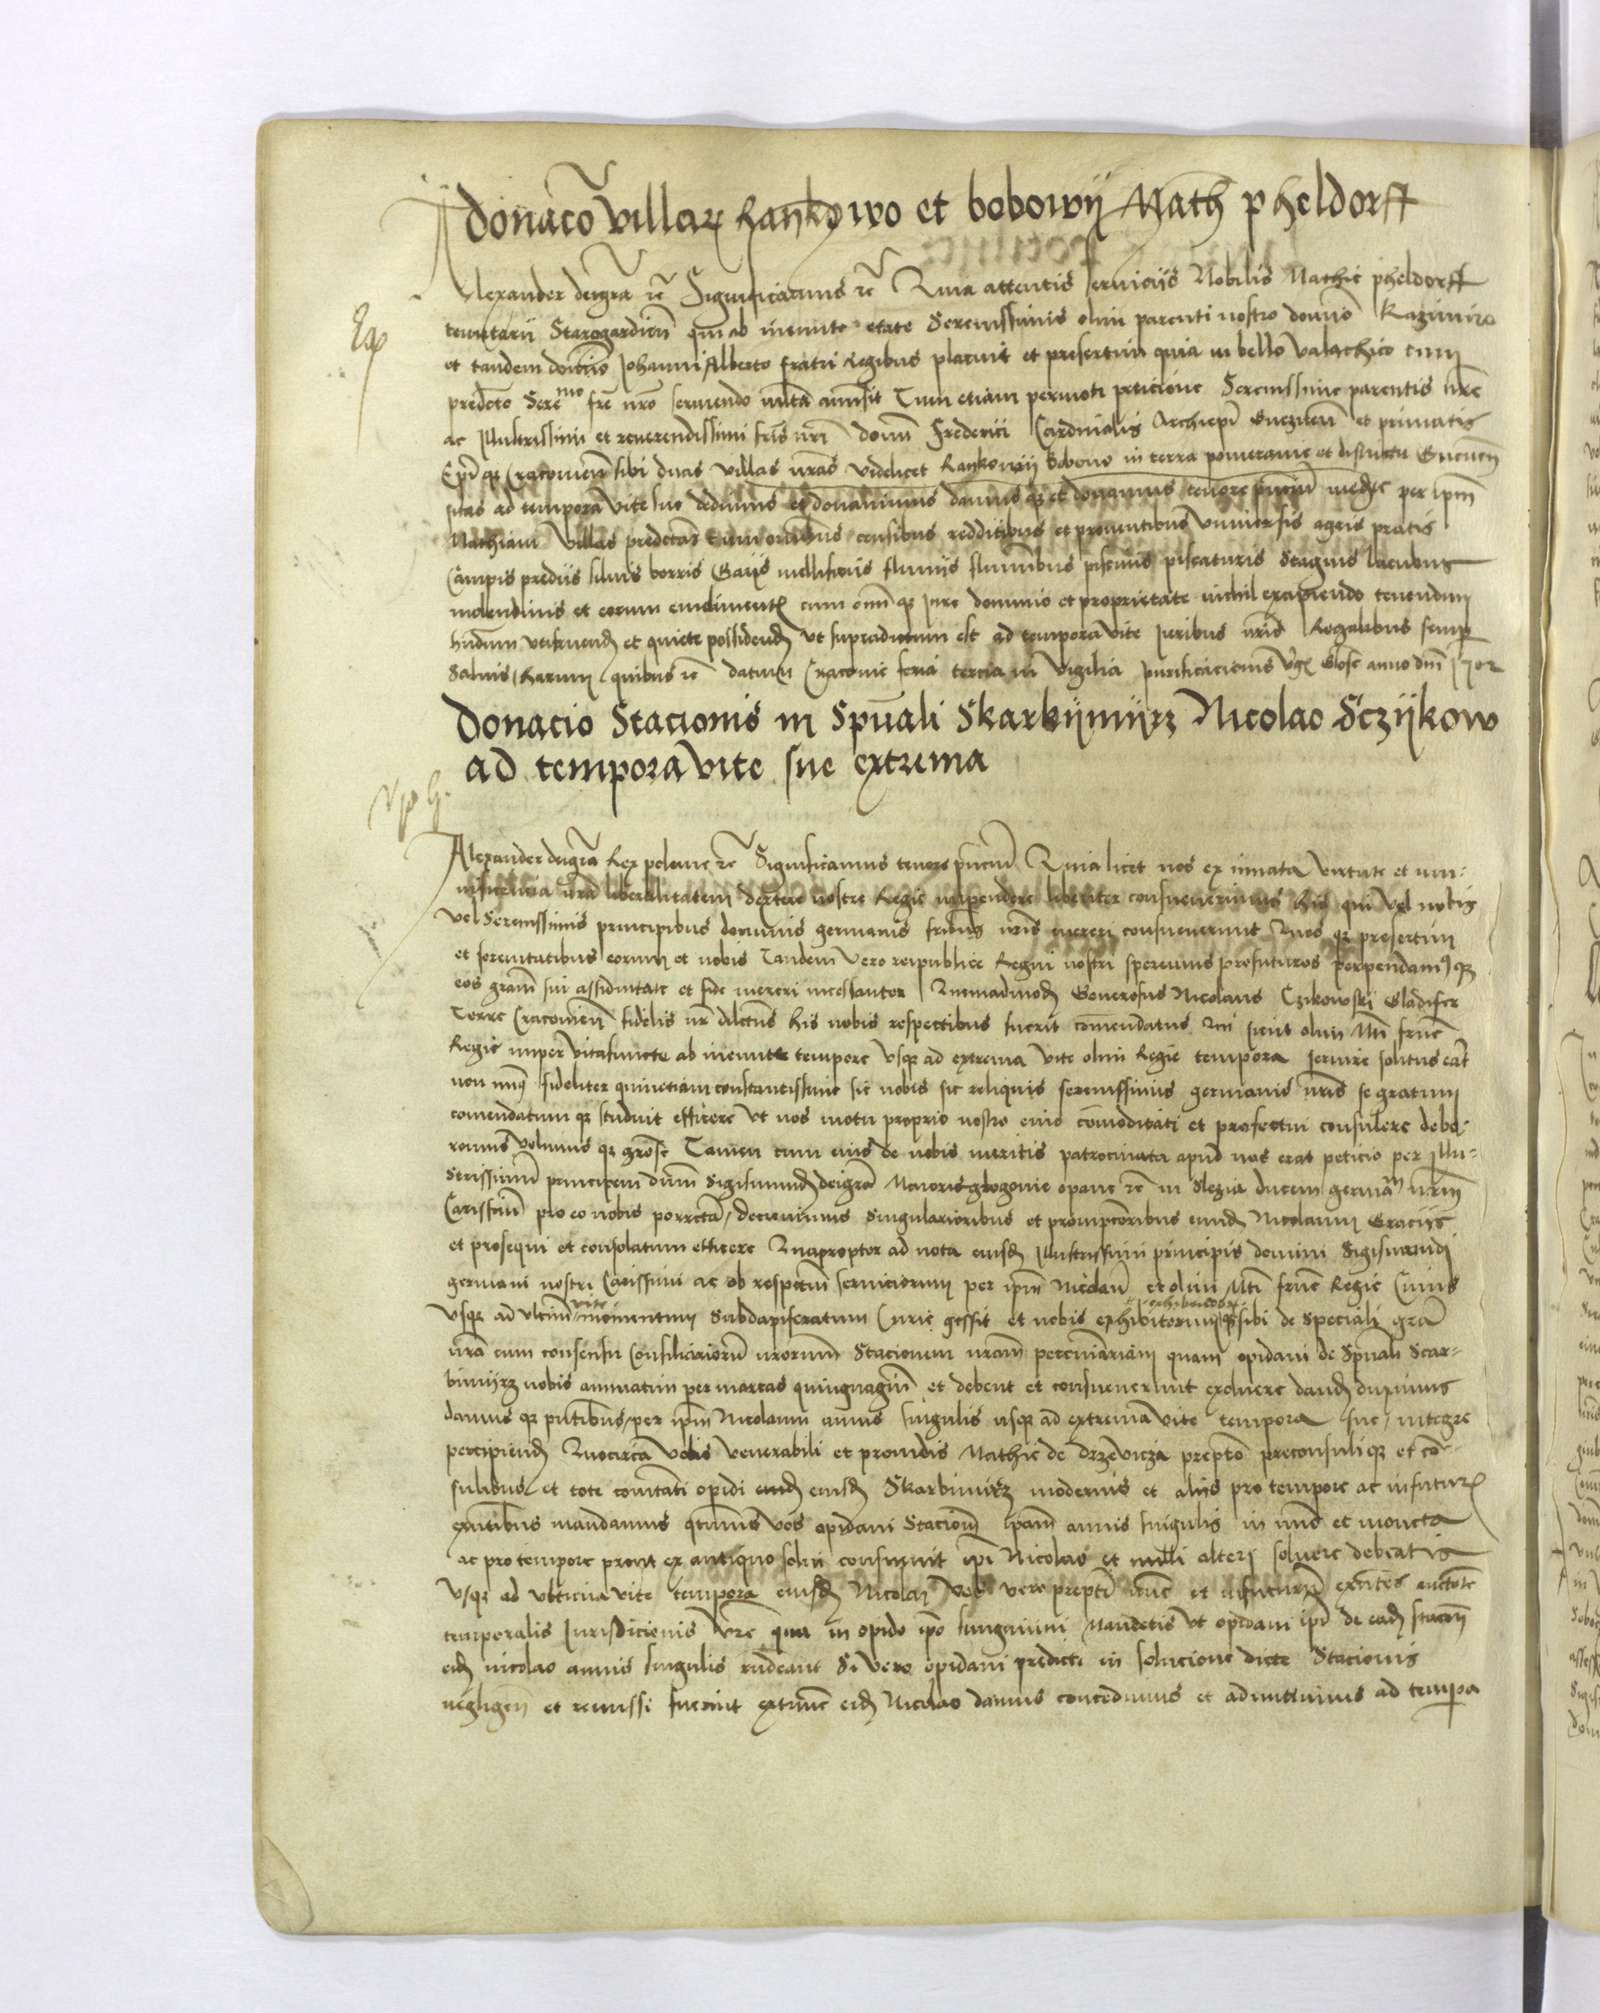 Donacio villarum Rankowo et bobowij Math pheldorff
Alexander dei gra etc Significamus etc Quia attentis serviciis Nobilis Mathie pheldorff
tenutarii Starogardien qui ab ineunte etate Serenissimis olim parenti nostro domino Kazimiro
et tandem domino Johanni Alberto fratri regibus placuit et presertim quia in bello valachico cum
predicto Sere mo fre nro serviendo multa amisit Tum etiam permoti peticione Serenissime parentis nre
ac Illustrissimi et reverendissimi fris nri domini Frederici Cardinalis Archiepi Gneznen et primatis
Epi que Cracovien sibi duas villas nras videlicet Rankowij Bobowo in terra pomeranie et districtu
sitas ad tempora vite sue dedimus et donavimus damus que et donamus tenore pncium mediante per ipm
Mathiam villas predictas cum omibus censibus redditibus et proventibus universis agris pratis
Campis prediis silvis borris Gaijs mellificiis fluviis fluminibus piscinis piscaturis Stagnis lacubus
molendinis et eorum emolimentis cum omni que jure dominio et proprietate nichil excipiendo tenendum
hndum utifruend et quiete possidend ut supradictum est ad tempora vite Juribus nris Regalibus semper
Salvis Harum quibus etc datum Cracovie feria tercia in vigilia purificacionis anno dni 1502
Donacio Stacionis in Spuali Skarbijmijrz Nicolao Sczijkow
ad tempora vite sue extrema
Alexander dei gra Rex polonie etc Significamus tenore pncium Quia licet nos ex innata virtute et
nra liberalitatem dextere nostre Regie impendere libenter consueverimus his qui vel nobis
vel Serenissimis principibus dominis germanis fribus nris mereri consueverunt Quos que presertim
et serenitatibus eorum et nobis Tandem vero reipublice Regni nostri speremus profuturos perpendamus que
eos gram sui assiduitate et fide mereri incessanter Quemadmod Generosus Nicolaus Czikowski Gladifer
Terre Cracovien fidelis nr dilectus his nobis respectibus fuerit comendatus Qui sicut olim Mti frne
Regie nuper vitafuncte ab ineunte tempore usque ad extrema vite olim Regie tempora servire solitus erat
non minus fideliter quinetiam constantissime sic nobis sic reliquis serenissimis germanis nris se gratum
comendatum que studuit efficere ut nos motu proprio nostro eius comoditati et profectui consulere debe
remus Tamen cum eius de nobis meritis patrocinata apud nos erat peticio per Illu-
strissimum principem dnum Sigismund dei gra Maioris glogovie opavie etc in Slezia ducem germanum nrm
Carissimum pro eo nobis porrecta, decrevimus singularioribus et promptioribus eund Nicolaum Graciis
et prosequi et consolatum efficere Quapropter ad vota eiusd Illustrissimi principis domini Sigismundi
germani nostri Carissimi ac ob respectum serviciorum per ipm Nicolaum et olim Mti frne Regie Cuius
usque ad ultimum vite momentum Subdapiferatum Curie gessit et nobis exhibitorum exhibendorum que sibi de speciali gra
nra cum consensu Consiliariorum nrorum Stacionem nram pecuniariam quam opidani de Spuali Scar-
bimijrz nobis annuatim per marcas quinquaginta et debent et consueverunt exolvere dand duximus
damus que pntibus, per ipm Nicolaum annis singulis usque ad extrema vite tempora sue, integre
percipiend Quocirca vobis venerabili et providis Mathie de drzevicza prepto preconsuli que et con-
sulibus et tote comitati opidi eiusd Skarbimirz modernis et aliis pro tempore ac infuturum
exntibus mandamus qtinus vos opidani Stacionem ipam annis singulis in et moneta
ac pro tempore prout ex antiquo solvi consuevit ipi Nicolao et nulli alteri solvere debeatis
usque ad ultima vite tempora eiusd Nicolai vos vero prepti nunc et infuturum exntes auctote
temporalis Jurisdicionis vre qua in opido ipo fungimini Mandetis ut opidani ipi de ead stacone
eid nicolao annis singulis rndeant Si vero opidani predicti in solucione dicte Stacionis
negligen et remissi fuerint extunc eid Nicolao damus concedimus et admittimus ad tempora